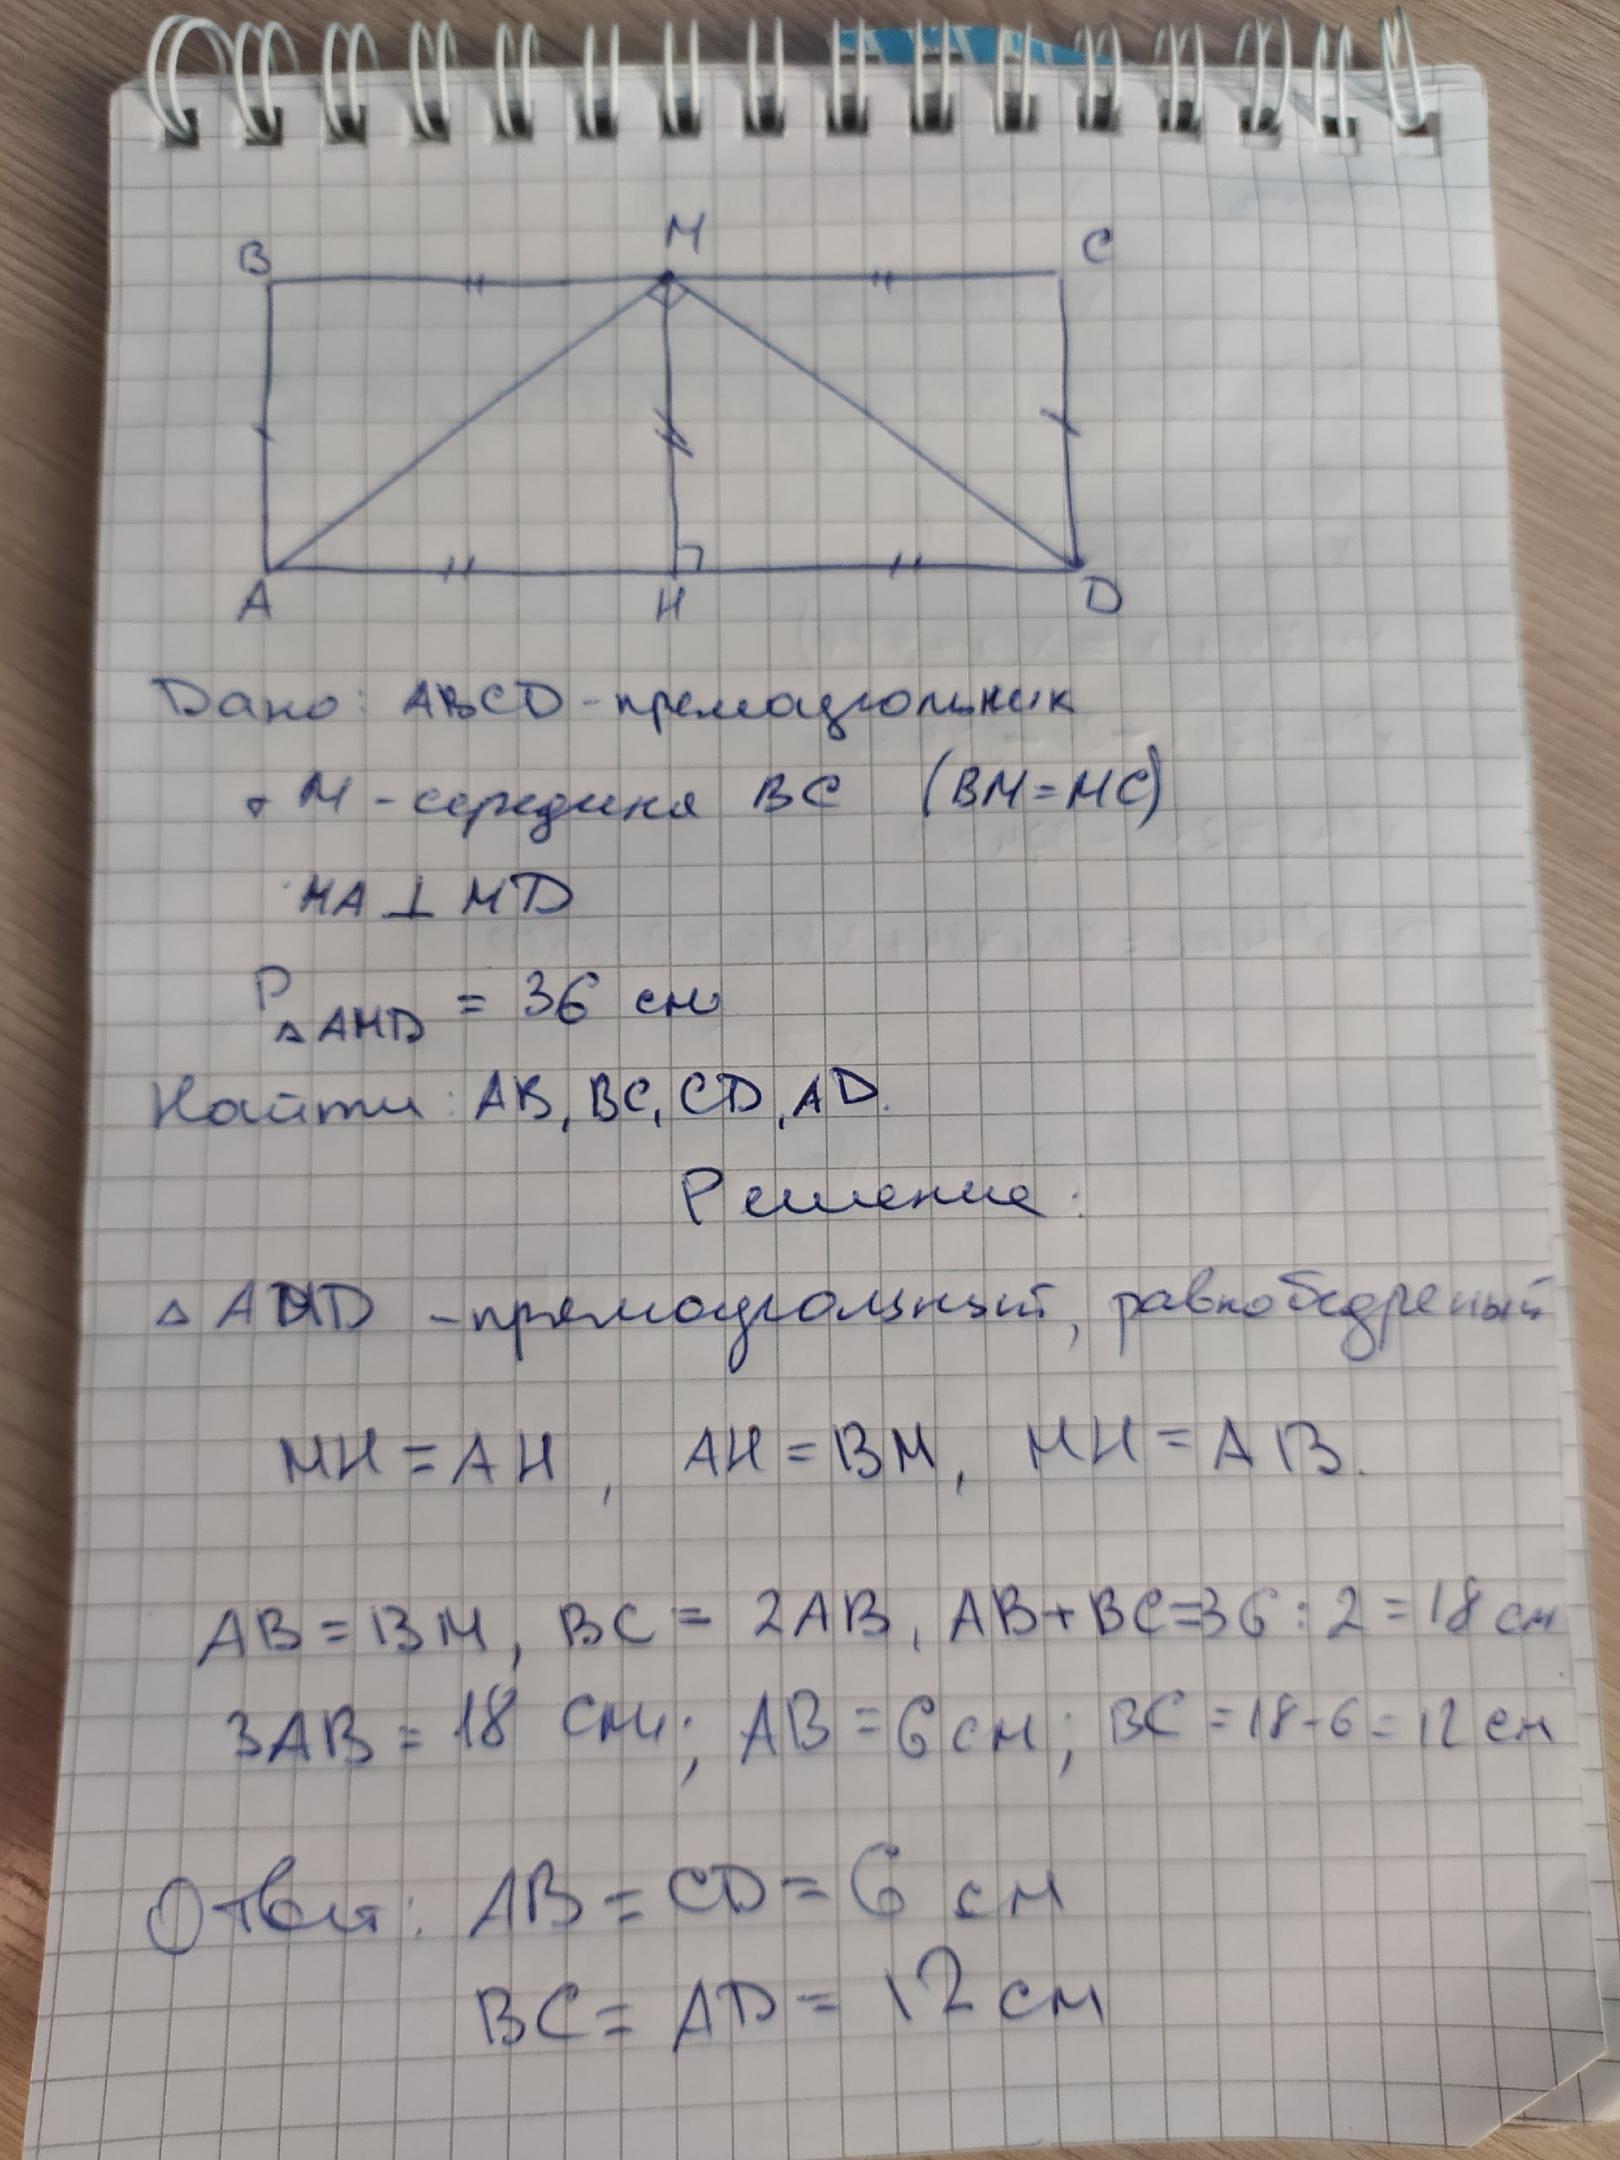 M
B
C
A
H
D
Дано: ABCD - прямоугольник
т M - середина BC (BM = MC)
MA ⊥ MD
P△AMD = 36 см
Найти: AB, BC, CD, AD.
Решение:
△ AMD - прямоугольный, равнобедреный
MH = AH, AH = BM, MH = AB.
AB = BM, BC = 2AB, AB + BC = 36 : 2 = 18 см
3AB = 18 см; AB = 6 см; BC = 18 - 6 = 12 см
Ответ: AB = CD = 6 см
BC = AD = 12 см